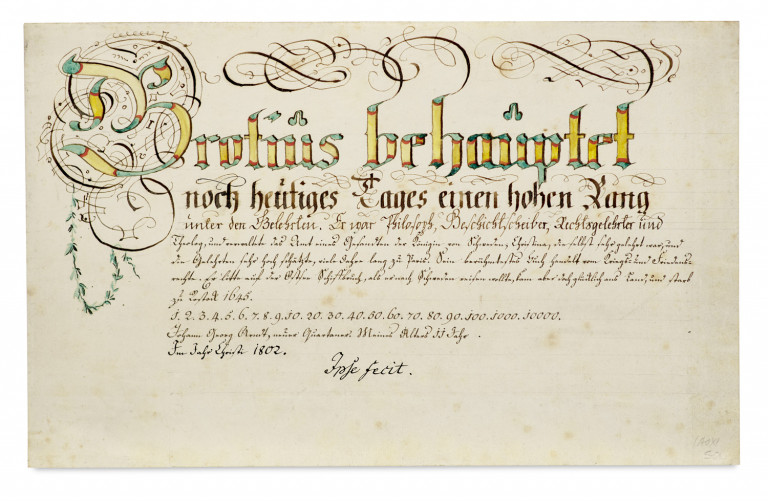 Grotius behauptet
noch heutiges Tages einen hohen Rang
unter den Gelehrten. Er war Philosoph, Geschichtschreiber, Rechtsgelehrter und
Theolog, und verwaltet das Amt eines Gesandten der Königin von Schweden, Christina, die selbst sehr gelehrt war, und
die Gelehrten sehr hoch schätzte, viele Jahre lang zu Paris. Sein berühmtestes Buch handelt vom Kriegs und Friedens
rechte. Er litte auf der Ostsee Schiffbruch, als er nach Schweden reisen wollte, kam aber doch glücklich ans Land, und starb
zu Rostock 1645.
1. 2. 3. 4. 5. 6. 7. 8. 9. 10. 20. 30. 40. 50. 60. 70. 80. 90. 100. 1000. 10000.
Johann Georg Arndt, neuer Quartaner Meines Alters 11 Jahr.
Im Jahr Christi 1802.
Ipse fecit.